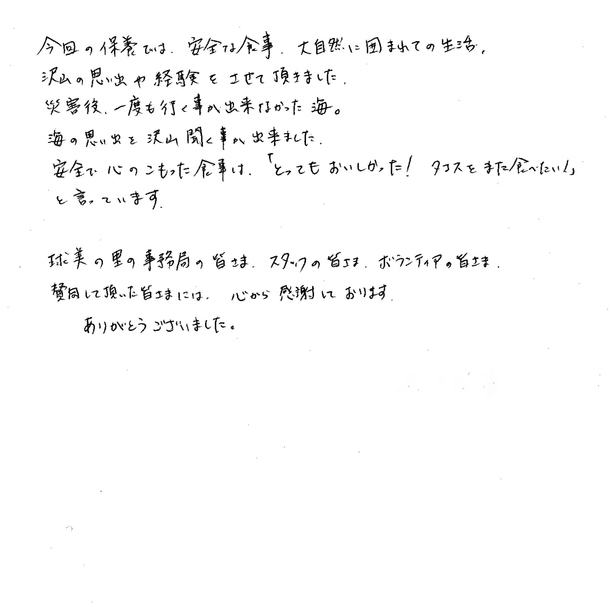 今回の保養では、安全な食事、大自然に囲まれての生活、
沢山の思い出や経験をさせて頂きました。
災害後、一度も行く事が出来なかった海。
海の思い出を沢山聞く事が出来ました。
安全で心のこもった食事は、「とってもおいしかった! タコスをまた食べたい!」
と言っています。
球美の里の事務局の皆さま、スタッフの皆さま、ボランティアの皆さま、
賛同して頂いた皆さまには、心から感謝しております。
ありがとうございました。